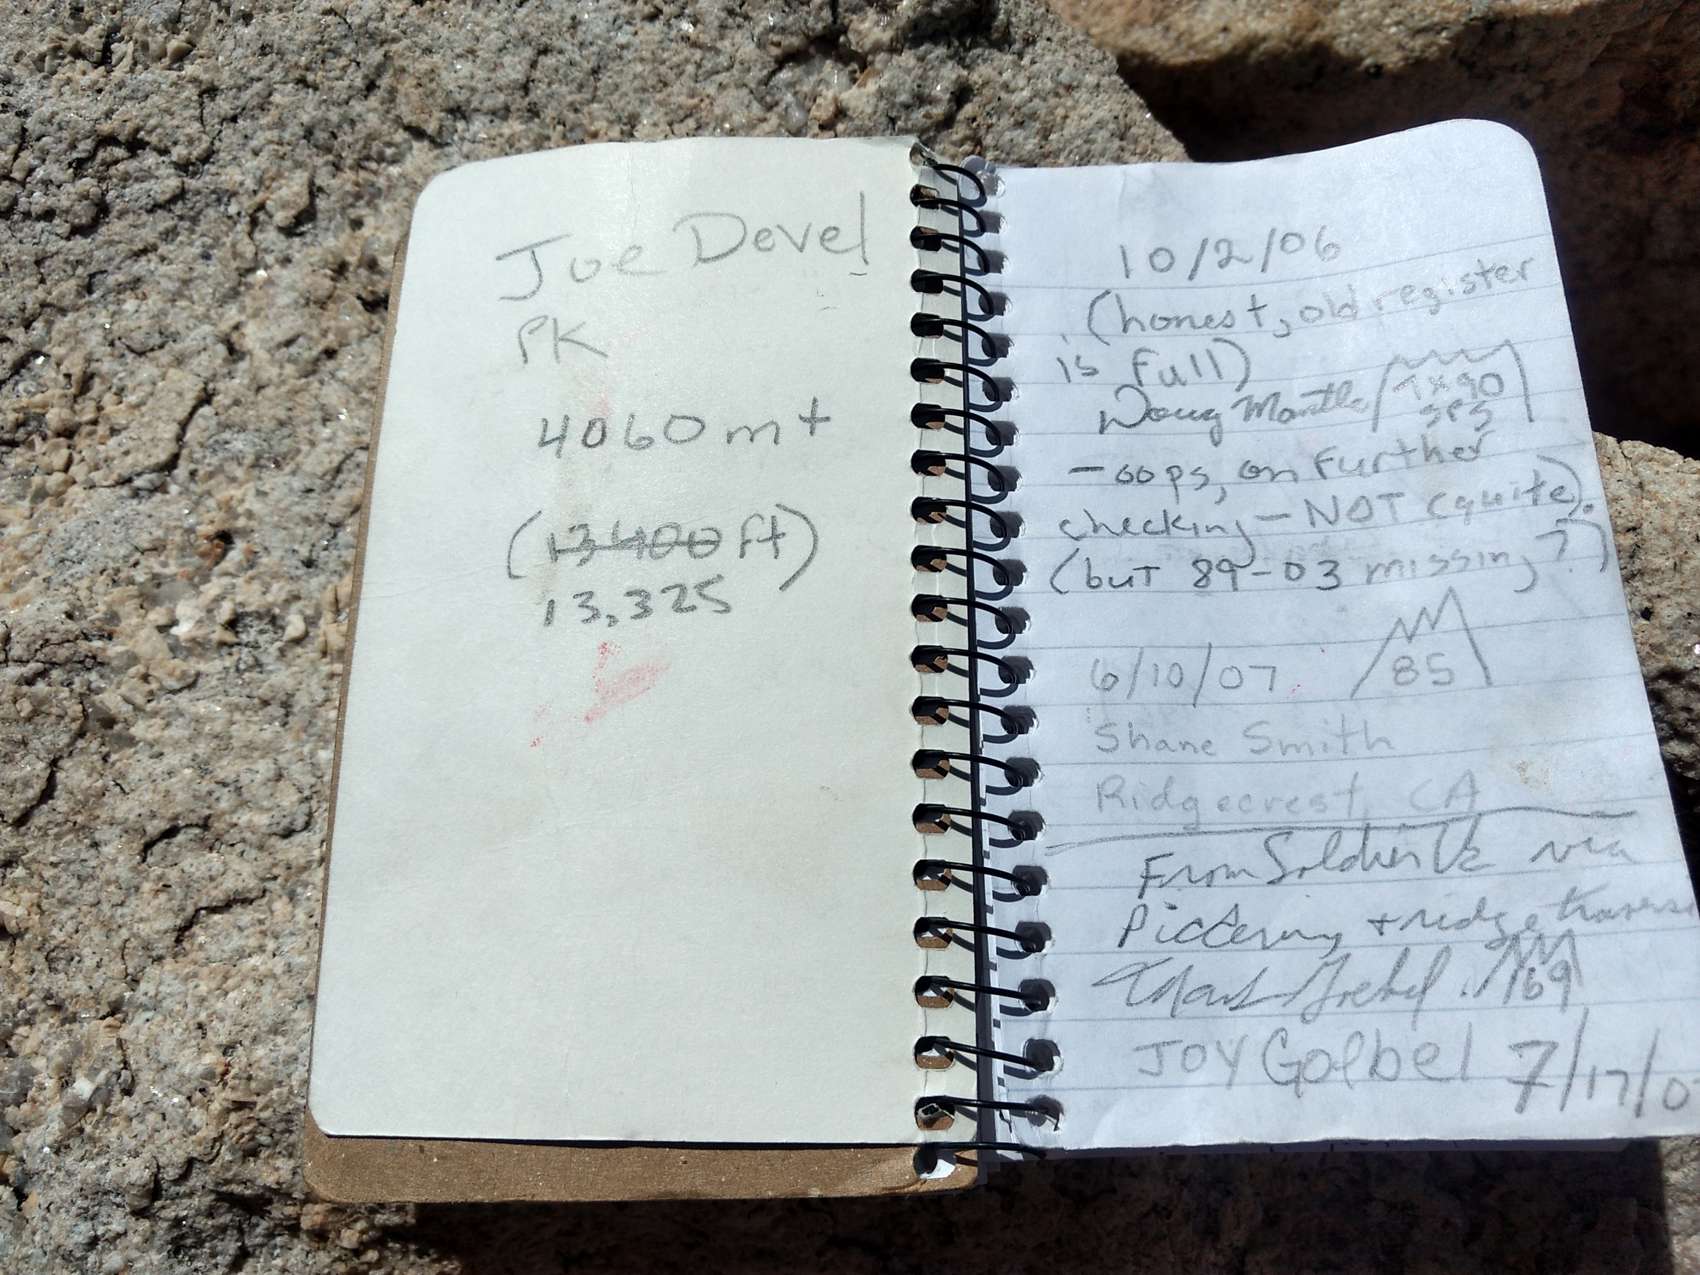 Joe Devel
PK
4060 m+
(13400 ft)
13,325
10/2/06
(honest, old register
is full)
Doug Mantle 7x90
SPS
- oops, on further
checking - NOT (quite).
(but 89-03 missing?)
6/10/07 85
Shane Smith
Ridgecrest CA
From Soldier Lk via
Pickering + ridge traverse
169
Joy Goebel 7/17/0